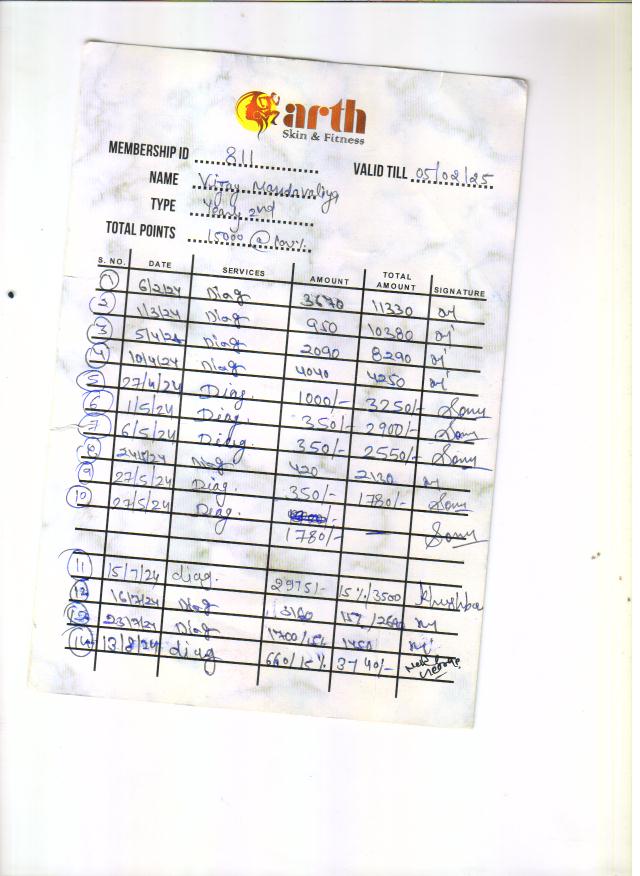 arth
Skin & Fitness
MEMBERSHIP ID 811
VALID TILL 05/02/25
NAME Vijay Mandavaliya
TYPE Yearly 2nd
TOTAL POINTS 15000 @
S. NO. DATE SERVICES AMOUNT TOTAL AMOUNT SIGNATURE
1 6/2/24 Diag 3670 11330
2 1/3/24 Diag 950 10380
3 5/4/24 Diag 2090 8290
4 10/4/24 Diag 4040 4250
5 27/4/24 Diag. 1000/- 3250/- Sony
6 1/5/24 Diag. 350/- 2900/- Sony
7 6/5/24 Diag. 350/- 2550/- Sony
8 Diag 420 2130
9 27/5/24 Diag. 350/- 1780/- Sony
10 27/5/24 Diag. 1780/- Sony
11 15/7/24 diag. 2975/- 15%/3500 Khushboo
12 16/7/24 Diag 3160
13 23/7/24 Diag 1700/15% 1450
14 13/8/24 diag 660/15% 3740/-